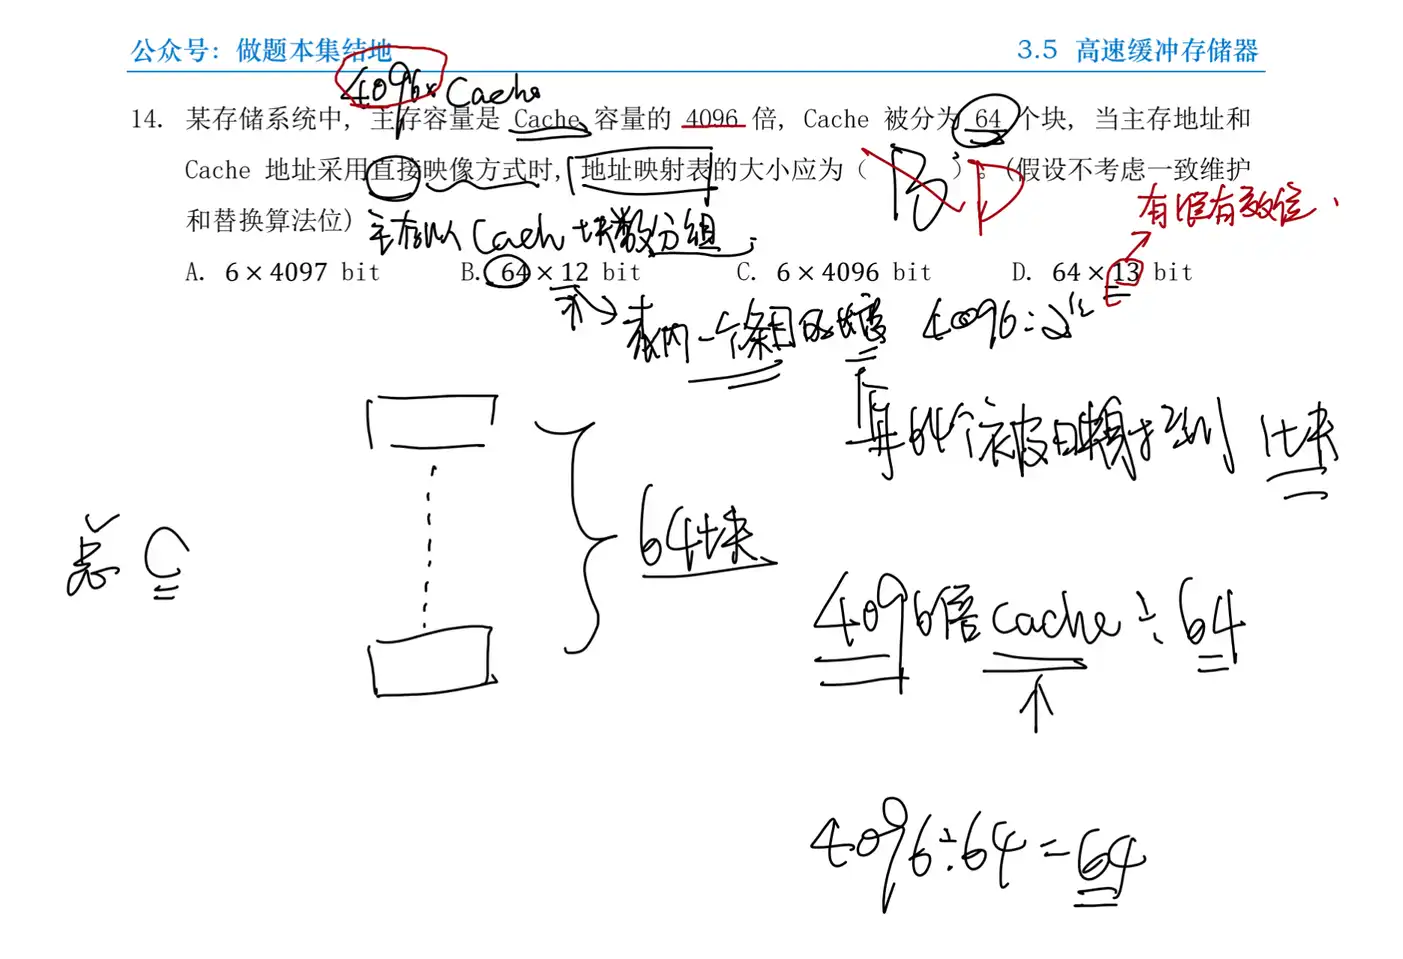 公众号：做题本集结地 3.5 高速缓冲存储器
4096× Cache
14. 某存储系统中, 主存容量是 Cache 容量的 4096 倍, Cache 被分为 64 个块, 当主存地址和
Cache 地址采用直接映像方式时, 地址映射表的大小应为（ B D ）。(假设不考虑一致维护
和替换算法位)
主存以 Cach 块数分组
有效位
A. 6 × 4097 bit B. 64 × 12 bit C. 6 × 4096 bit D. 64 × 13 bit
表内一个条目的 4096 = 2¹²
每64个 映射到 1块
64块
总 C
4096倍 cache ÷ 64
4096 ÷ 64 = 64